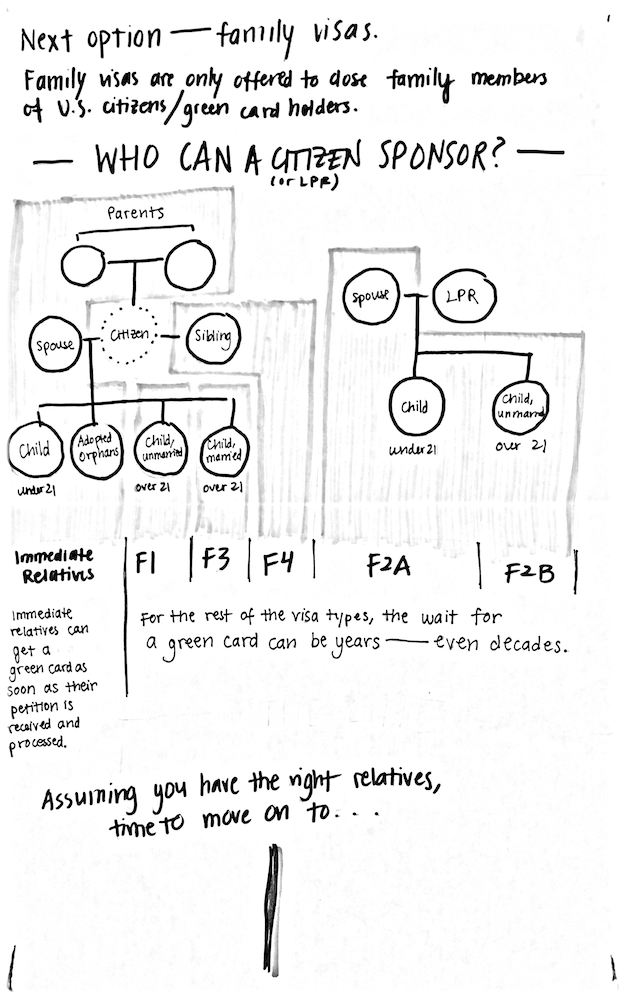 Next option — family visas.
Family visas are only offered to close family members
of U.S. citizens/green card holders.
— WHO CAN A CITIZEN SPONSOR? —
(or LPR)
Parents
Spouse
Citizen
Sibling
Child
under 21
Adopted
Orphans
Child,
unmarried
over 21
Child,
married
over 21
Spouse
LPR
Child
under 21
Child,
unmarried
over 21
Immediate
Relatives
F1
F3
F4
F2A
F2B
Immediate
relatives can
get a
green card as
soon as their
petition is
received and
processed.
For the rest of the visa types, the wait for
a green card can be years — even decades.
Assuming you have the right relatives,
time to move on to. . .